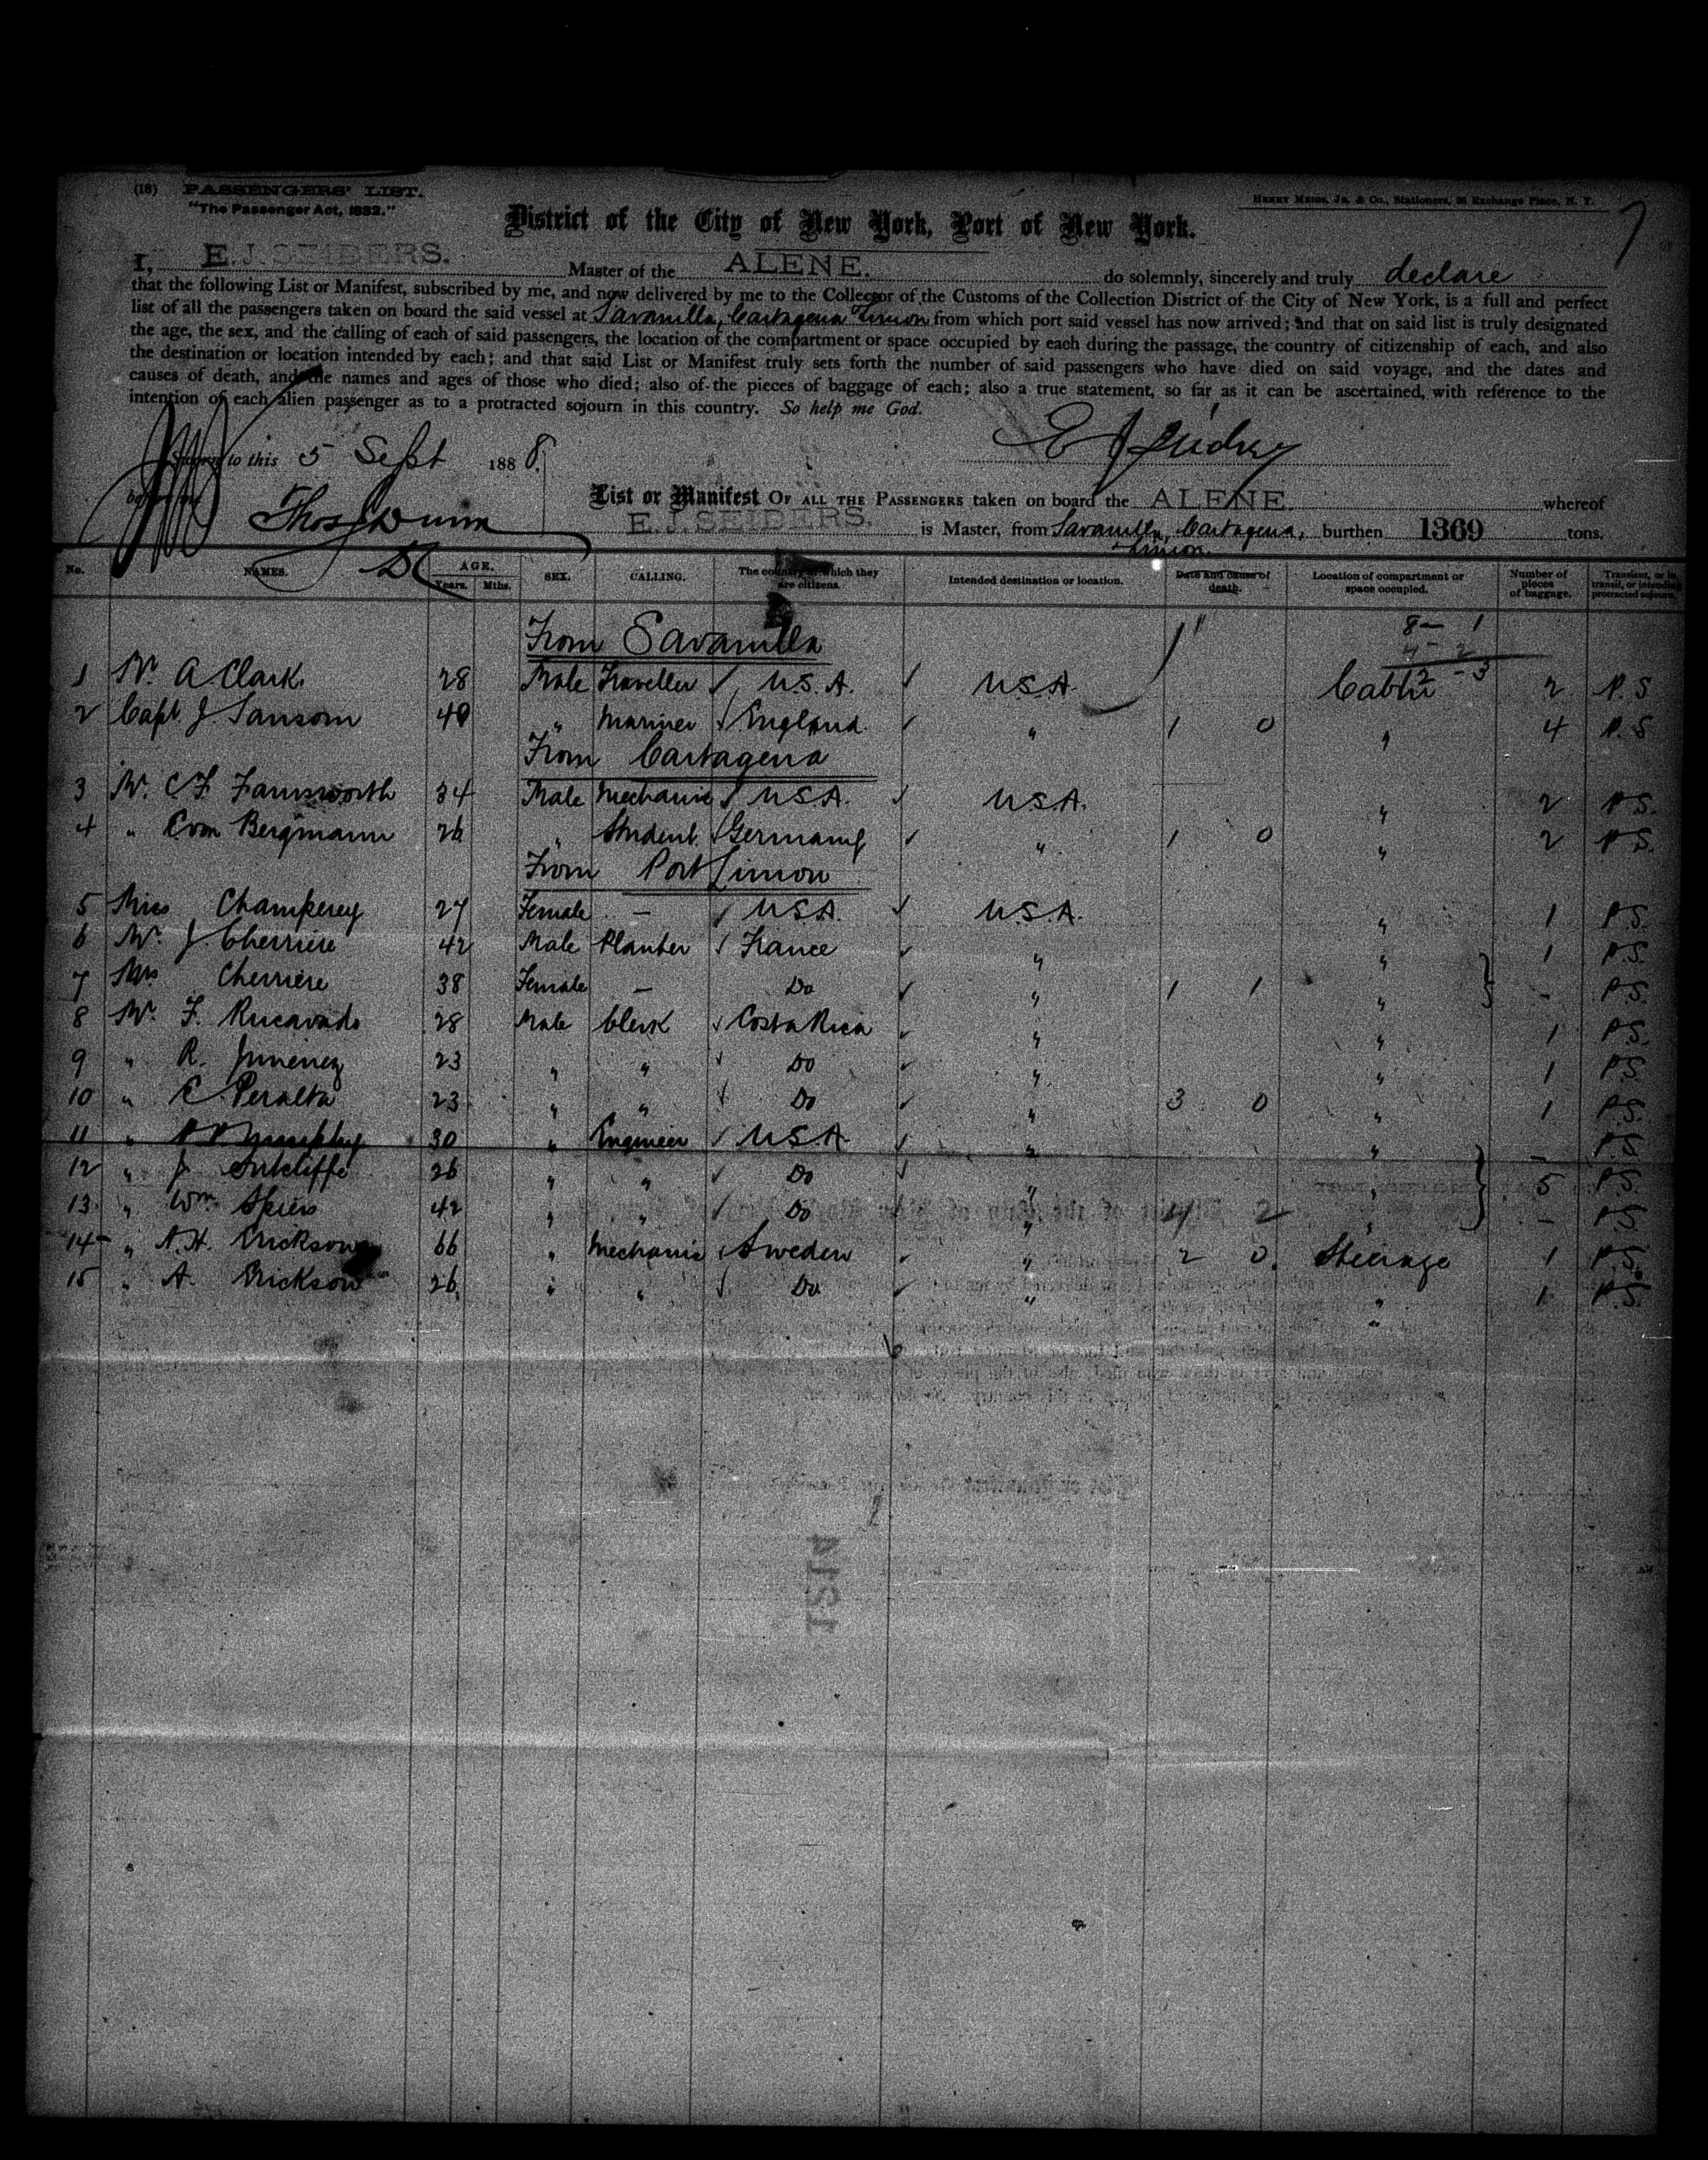 (18) PASSENGERS' LIST.
"The Passenger Act, 1882."
HENRY MEIGS, JR. & Co., Stationers, Exchange Place, N. Y.
District of the City of New York, Port of New York.
I, E. J. SEIDERS. Master of the ALENE. do solemnly, sincerely and truly declare
that the following List or Manifest, subscribed by me, and now delivered by me to the Collector of the Customs of the Collection District of the City of New York, is a full and perfect
list of all the passengers taken on board the said vessel at Savanilla, Cartagena Limon from which port said vessel has now arrived; and that on said list is truly designated
the age, the sex, and the calling of each of said passengers, the location of the compartment or space occupied by each during the passage, the country of citizenship of each, and also
the destination or location intended by each; and that said List or Manifest truly sets forth the number of said passengers who have died on said voyage, and the dates and
causes of death, and the names and ages of those who died; also of the pieces of baggage of each; also a true statement, so far as it can be ascertained, with reference to the
intention of each alien passenger as to a protracted sojourn in this country. So help me God.
Sworn to this 5 Sept 1888.
before me
Thos J Dunn
List or Manifest OF ALL THE PASSENGERS taken on board the ALENE. whereof
E. J. SEIDERS. is Master, from Savanilla, Cartagena, Limon. burthen 1369 tons.
No. NAMES. AGE. Years. Mths. SEX. CALLING. The country of which they are citizens. Intended destination or location. Date and cause of death. Location of compartment or space occupied. Number of pieces of baggage. Transient, or in transit, or intending protracted sojourn.
From Savanilla
8 - 1
4 - 2
2 - 3
1 Mr. A Clark. 28 Male Traveller U.S.A. U.S.A. Cabin 2 P.S.
2 Capt. J. Sansom 49 " Mariner England " 1 0 " 4 P.S.
From Cartagena
3 Mr. C F Farnsworth 34 Male Mechanic U.S.A. U.S.A. " 2 P.S.
4 " Bergmann 26 " Student Germany " 1 0 " 2 P.S.
From Port Limon
5 Miss 27 Female - U.S.A. U.S.A. " 1 P.S.
6 Mr. J. Cherriere 42 Male Planter France " " 1 P.S.
7 Mrs Cherriere 38 Female - Do " 1 1 " - P.S.
8 Mr. F. Rucavado 28 Male Clerk Costa Rica " " 1 P.S.
9 " R. Jimenez 23 " " Do " " 1 P.S.
10 " C. Peralta 23 " " Do " 3 0 " 1 P.S.
11 " Murphy 30 " Engineer U.S.A. " " - P.S.
12 " J. Sutcliffe 26 " " Do " " 5 P.S.
13 " Wm. Spiers 42 " " Do " 4 2 " - P.S.
14 " A. H. Erickson 66 " Mechanic Sweden " 2 0 Steerage 1 P.S.
15 " A. Erickson 26 " " Do " " 1 P.S.